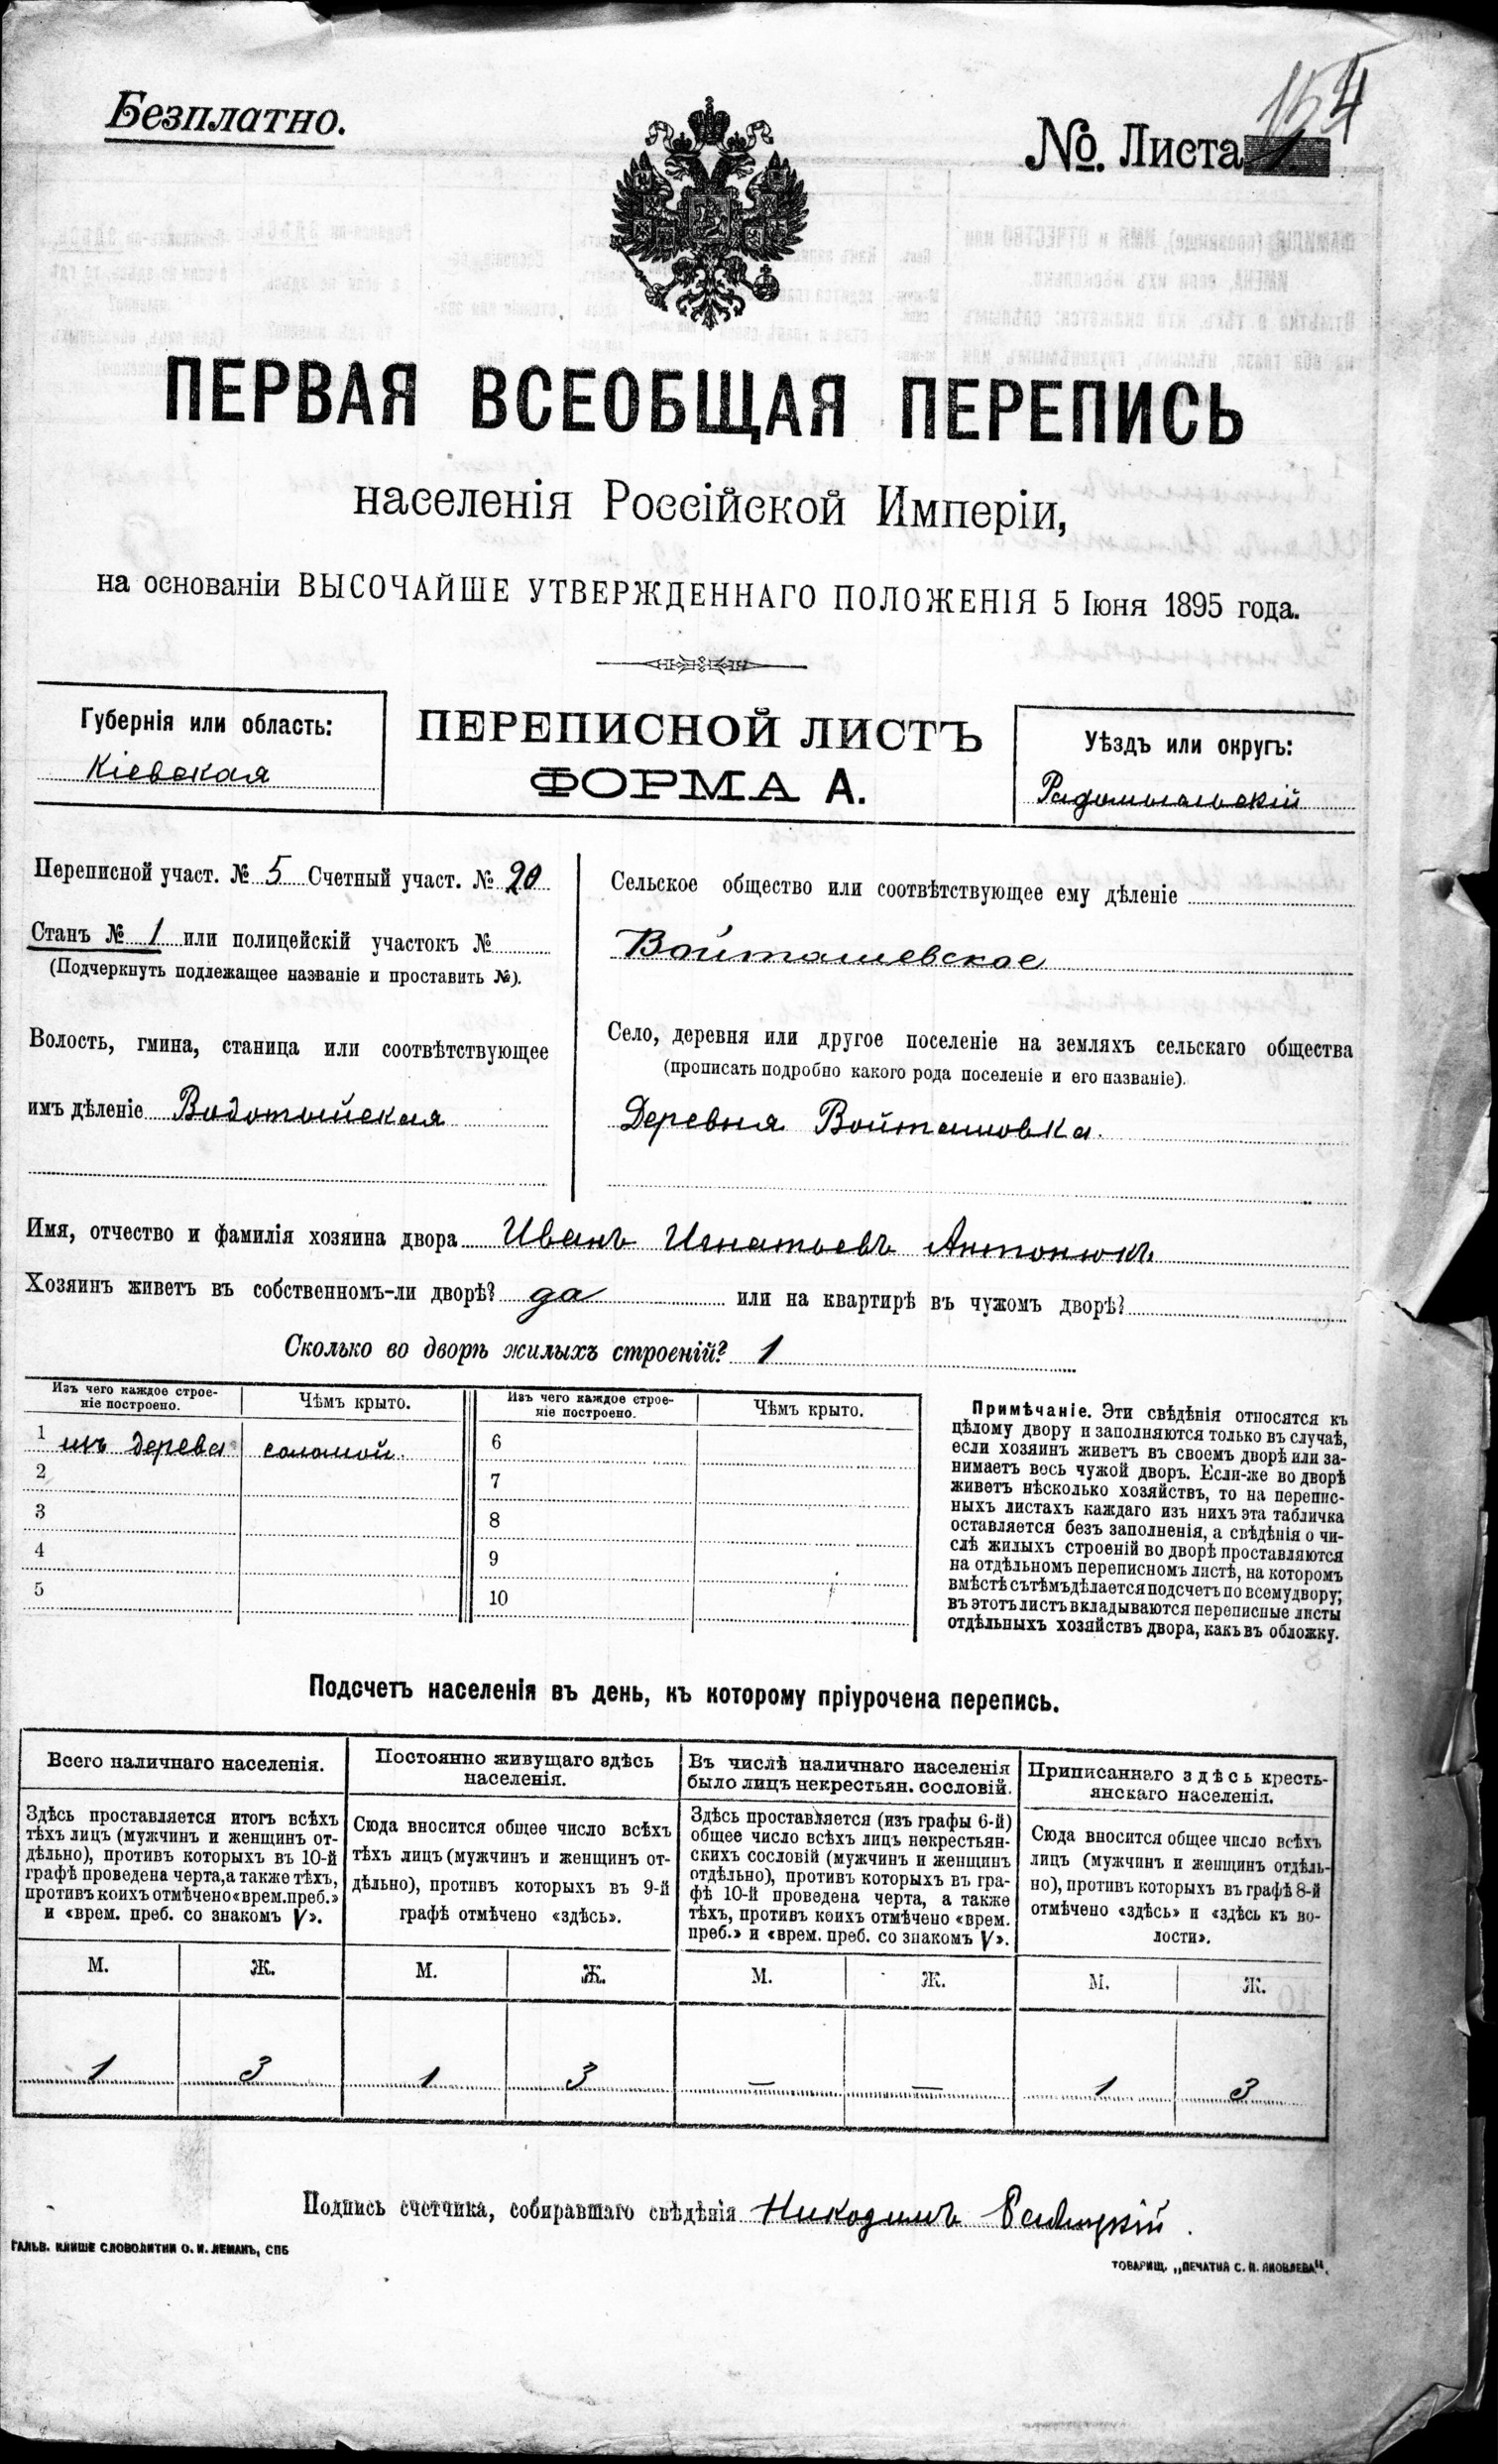 Безплатно.
№. Листа 154
ПЕРВАЯ ВСЕОБЩАЯ ПЕРЕПИСЬ
населенія Россійской Имперіи,
на основаніи ВЫСОЧАЙШЕ УТВЕРЖДЕННАГО ПОЛОЖЕНІЯ 5 Іюня 1895 года.
Губернія или область:
Кіевская
ПЕРЕПИСНОЙ ЛИСТЪ
ФОРМА А.
Уѣздъ или округъ:
Радомысльскій
Переписной участ. № 5 Счетный участ. № 20
Станъ № 1 или полицейскій участокъ №
(Подчеркнуть подлежащее названіе и проставить №).
Волость, гмина, станица или соотвѣтствующее
имъ дѣленіе Водотыйская
Сельское общество или соотвѣтствующее ему дѣленіе
Войташевское
Село, деревня или другое поселеніе на земляхъ сельскаго общества
(прописать подробно какого рода поселеніе и его названіе).
Деревня Войташовка.
Имя, отчество и фамилія хозяина двора Иванъ Игнатьевъ Антонюкъ
Хозяинъ живетъ въ собственномъ-ли дворѣ? да или на квартирѣ въ чужомъ дворѣ?
Сколько во дворѣ жилыхъ строеній? 1
Изъ чего каждое строе-
ніе построено.
Чѣмъ крыто.
Изъ чего каждое строе-
ніе построено.
Чѣмъ крыто.
1 изъ дерева соломой. 6
2 7
3 8
4 9
5 10
Примѣчаніе. Эти свѣдѣнія относятся къ
цѣлому двору и заполняются только въ случаѣ,
если хозяинъ живетъ въ своемъ дворѣ или за-
нимаетъ весь чужой дворъ. Если-же во дворѣ
живетъ нѣсколько хозяйствъ, то на перепис-
ныхъ листахъ каждаго изъ нихъ эта табличка
оставляется безъ заполненія, а свѣдѣнія о чи-
слѣ жилыхъ строеній во дворѣ проставляются
на отдѣльномъ переписномъ листѣ, на которомъ
вмѣстѣ съ тѣмъ дѣлается подсчетъ по всему двору;
въ этотъ листъ вкладываются переписные листы
отдѣльныхъ хозяйствъ двора, какъ въ обложку.
Подсчетъ населенія въ день, къ которому пріурочена перепись.
Всего наличнаго населенія.
Здѣсь проставляется итогъ всѣхъ
тѣхъ лицъ (мужчинъ и женщинъ от-
дѣльно), противъ которыхъ въ 10-й
графѣ проведена черта, а также тѣхъ,
противъ коихъ отмѣчено «врем. преб.»
и «врем. преб. со знакомъ V».
Постоянно живущаго здѣсь
населенія.
Сюда вносится общее число всѣхъ
тѣхъ лицъ (мужчинъ и женщинъ от-
дѣльно), противъ которыхъ въ 9-й
графѣ отмѣчено «здѣсь».
Въ числѣ наличнаго населенія
было лицъ некрестьян. сословій.
Здѣсь проставляется (изъ графы 6-й)
общее число всѣхъ лицъ некрестьян-
скихъ сословій (мужчинъ и женщинъ
отдѣльно), противъ которыхъ въ гра-
фѣ 10-й проведена черта, а также
тѣхъ, противъ коихъ отмѣчено «врем.
преб.» и «врем. преб. со знакомъ V».
Приписаннаго здѣсь кресть-
янскаго населенія.
Сюда вносится общее число всѣхъ
лицъ (мужчинъ и женщинъ отдѣль-
но), противъ которыхъ въ графѣ 8-й
отмѣчено «здѣсь» и «здѣсь къ во-
лости».
М. Ж. М. Ж. М. Ж. М. Ж.
1 3 1 3 — — 1 3
Подпись счетчика, собиравшаго свѣдѣнія Никодимъ
ГАЛЬВ. КЛИШЕ СЛОВОЛИТНИ О. И. ЛЕМАНЪ, СПБ
ТОВАРИЩ. „ПЕЧАТНЯ С. П. ЯКОВЛЕВА".